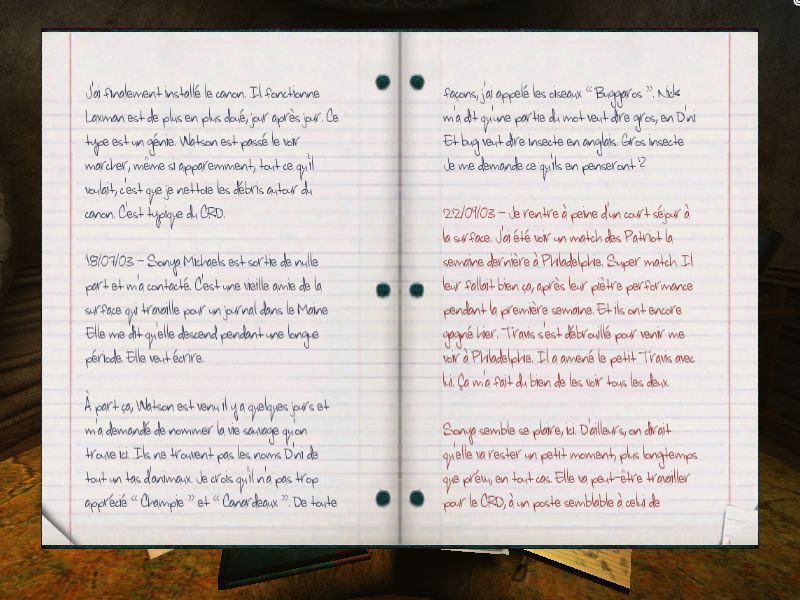 J'ai finalement installé le canon. Il fonctionne
Laxman est de plus en plus doué, jour après jour. Ce
type est un génie. Watson est passé le voir
marcher, même si apparemment, tout ce qu'il
voulait, c'est que je nettoie les débris autour du
canon. C'est typique du CRD.
18/07/03 – Sonya Michaels est sortie de nulle
part et m'a contacté. C'est une vieille amie de la
surface qui travaille pour un journal dans le Maine
Elle me dit qu'elle descend pendant une longue
période. Elle veut écrire.
À part ça, Watson est venu il y a quelques jours et
m'a demandé de nommer la vie sauvage qu'on
trouve ici. Ils ne trouvent pas les noms D'ni de
tout un tas d'animaux. Je crois qu'il n'a pas trop
apprécié “ Champie ” et “ Canardeaux ”. De toute
façons, j'ai appelé les oiseaux “ Buggaros ”. Nick
m'a dit qu'une partie du mot veut dire gros, en D'ni
Et bug veut dire insecte en anglais. Gros insecte
Je me demande ce qu'ils en penseront ?
22/09/03 – Je rentre à peine d'un court séjour à
la surface. J'ai été voir un match des Patriot la
semaine dernière à Philadelphie. Super match. Il
leur fallait bien ça, après leur piètre performance
pendant la première semaine. Et ils ont encore
gagné hier. Travis s'est débrouillé pour venir me
voir à Philadelphie. Il a amené le petit Travis avec
lui. Ça m'a fait du bien de les voir tous les deux
Sonya semble se plaire, ici. D'ailleurs, on dirait
qu'elle va rester un petit moment, plus longtemps
que prévu, en tout cas. Elle va peut-être travailler
pour le CRD, à un poste semblable à celui de